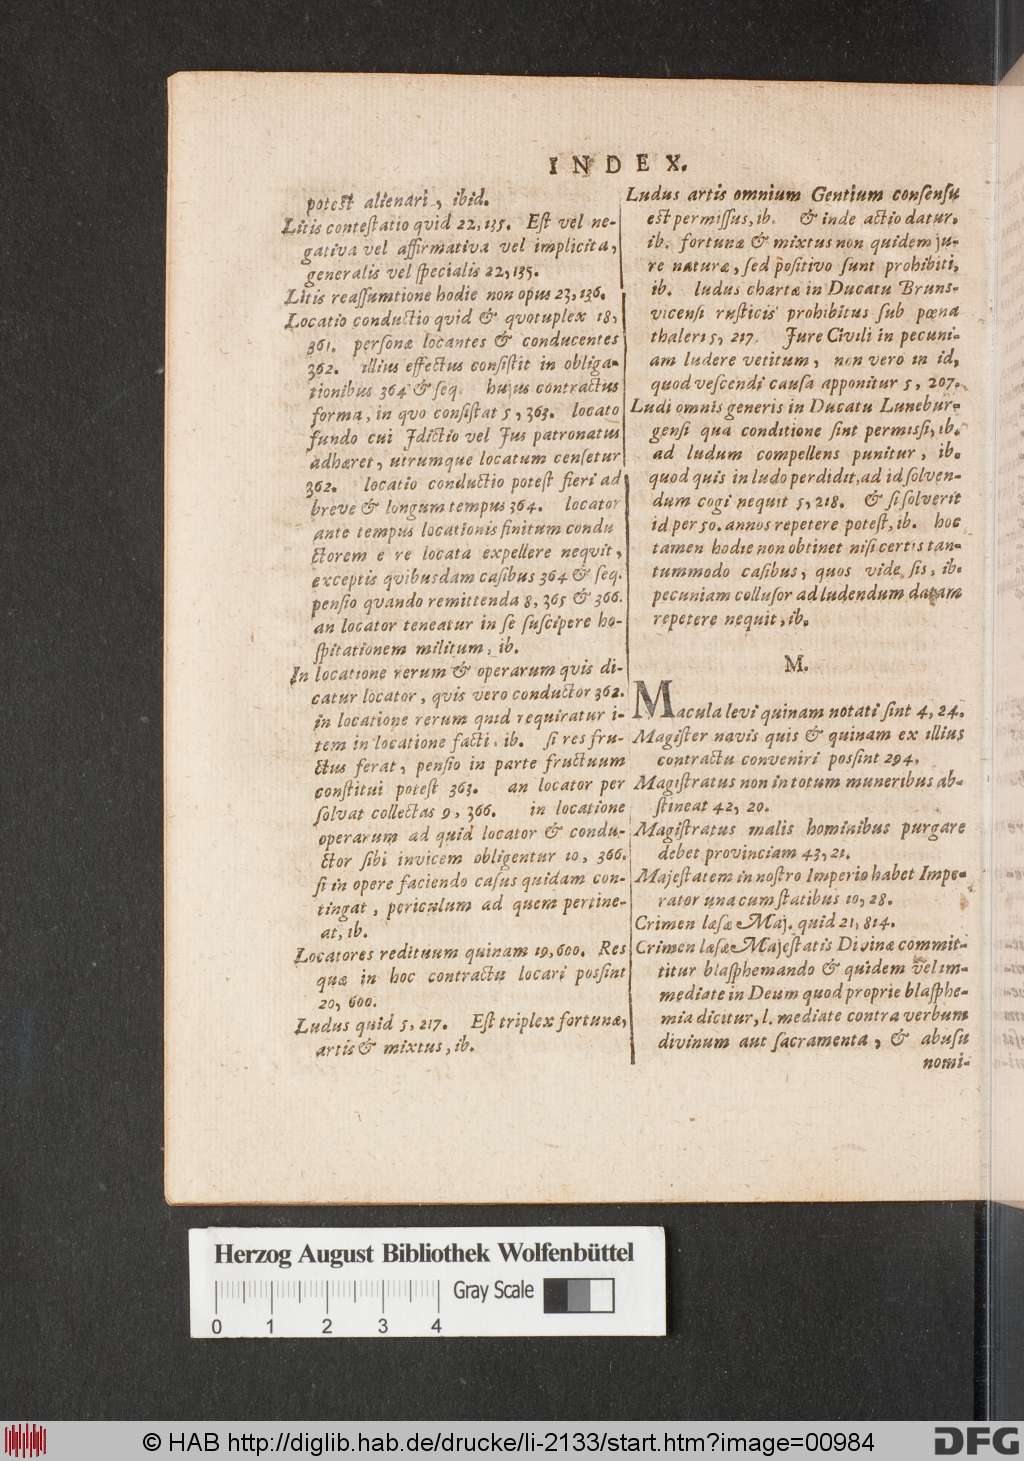 INDEX.
poteſt alienari, ibid.
Litis conteſtatio qvid 22, 135. Eſt vel ne-
gativa vel affirmativa vel implicita,
generalis vel ſpecialis 22, 135.
Litis reaſſumtione hodie non opus 23, 136.
Locatio conductio qvid & qvotuplex 18,
361. perſonæ locantes & conducentes
362. illius effectus conſiſtit in obliga-
tionibus 364 & ſeq. hujus contractus
forma, in qvo conſiſtat 5, 363. locato
fundo cui Jdictio vel Jus patronatus
adhæret, utrumque locatum cenſetur
362. locatio conductio poteſt fieri ad
breve & longum tempus 364. locator
ante tempus locationis finitum condu
ctorem e re locata expellere neqvit,
exceptis qvibusdam caſibus 364 & ſeq.
penſio qvando remittenda 8, 365 & 366.
an locator teneatur in ſe ſuſcipere ho-
ſpitationem militum, ib.
In locatione rerum & operarum qvis di-
catur locator, qvis vero conductor 362.
in locatione rerum quid requiratur i-
tem in locatione facti, ib. ſi res fru-
ctus ferat, penſio in parte fructuum
conſtitui poteſt 363. an locator per
ſolvat collectas 9, 366. in locatione
operarum ad quid locator & condu-
ctor ſibi invicem obligentur 10, 366.
ſi in opere faciendo caſus quidam con-
tingat, periculum ad quem pertine-
at, ib.
Locatores redituum quinam 19, 600. Res
quæ in hoc contractu locari poſſint
20, 600.
Ludus quid 5, 217. Eſt triplex fortunæ,
artis & mixtus, ib.
Ludus artis omnium Gentium conſenſu
eſt permiſſus, ib. & inde actio datur,
ib. fortunæ & mixtus non quidem ju-
re naturæ, ſed poſitivo ſunt prohibiti,
ib. ludus chartæ in Ducatu Bruns-
vicenſi ruſticis prohibitus ſub pœna
thaleri 5, 217. Jure Civili in pecuni-
am ludere vetitum, non vero in id,
quod veſcendi cauſa apponitur 5, 207.
Ludi omnis generis in Ducatu Lunebur-
genſi qua conditione ſint permiſſi, ib.
ad ludum compellens punitur, ib.
quod quis in ludo perdidit, ad id ſolven-
dum cogi nequit 5, 218. & ſi ſolverit
id per 50. annos repetere poteſt, ib. hoc
tamen hodie non obtinet niſi certis tan-
tummodo caſibus, quos vide ſis, ib.
pecuniam colluſor ad ludendum datam
repetere nequit, ib.
M.
Macula levi quinam notati ſint 4, 24.
Magiſter navis quis & quinam ex illius
contractu conveniri poſſint 294.
Magiſtratus non in totum muneribus ab-
ſtineat 42, 20.
Magiſtratus malis hominibus purgare
debet provinciam 43, 21.
Majeſtatem in noſtro Imperio habet Impe-
rator una cum ſtatibus 10, 28.
Crimen læſæ Maj. quid 21, 814.
Crimen læſæ Majeſtatis Divinæ commit-
titur blaſphemando & quidem vel im-
mediate in Deum quod proprie blaſphe-
mia dicitur, l. mediate contra verbum
divinum aut ſacramenta, & abuſu
nomi-
Herzog August Bibliothek Wolfenbüttel
Gray Scale
0 1 2 3 4
© HAB http://diglib.hab.de/drucke/li-2133/start.htm?image=00984
DFG